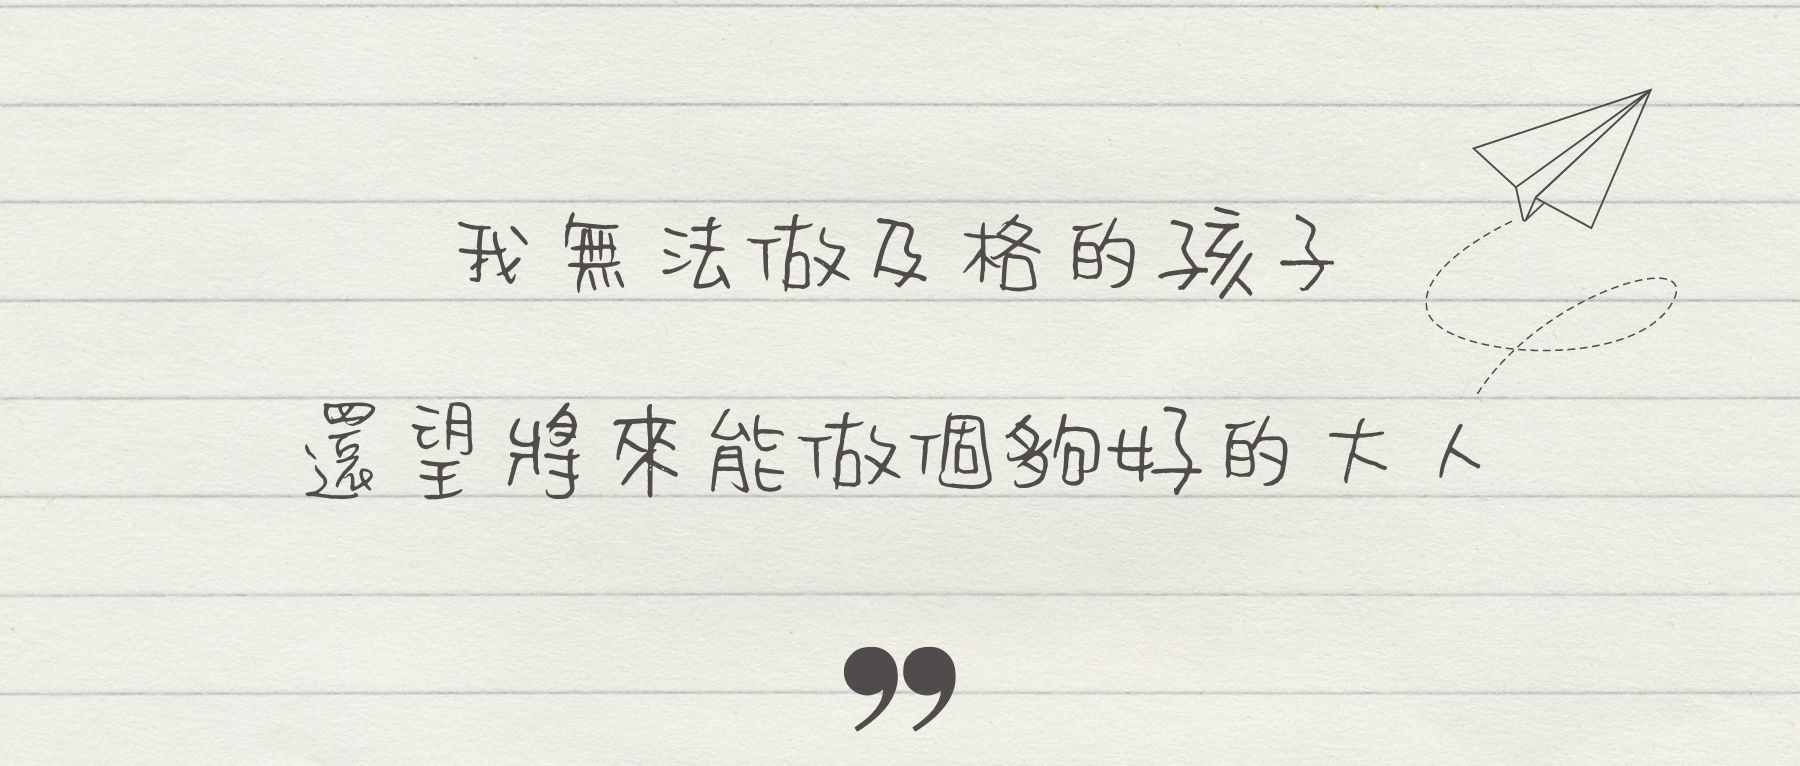 我無法做及格的孩子
還望將來能做個夠好的大人
”